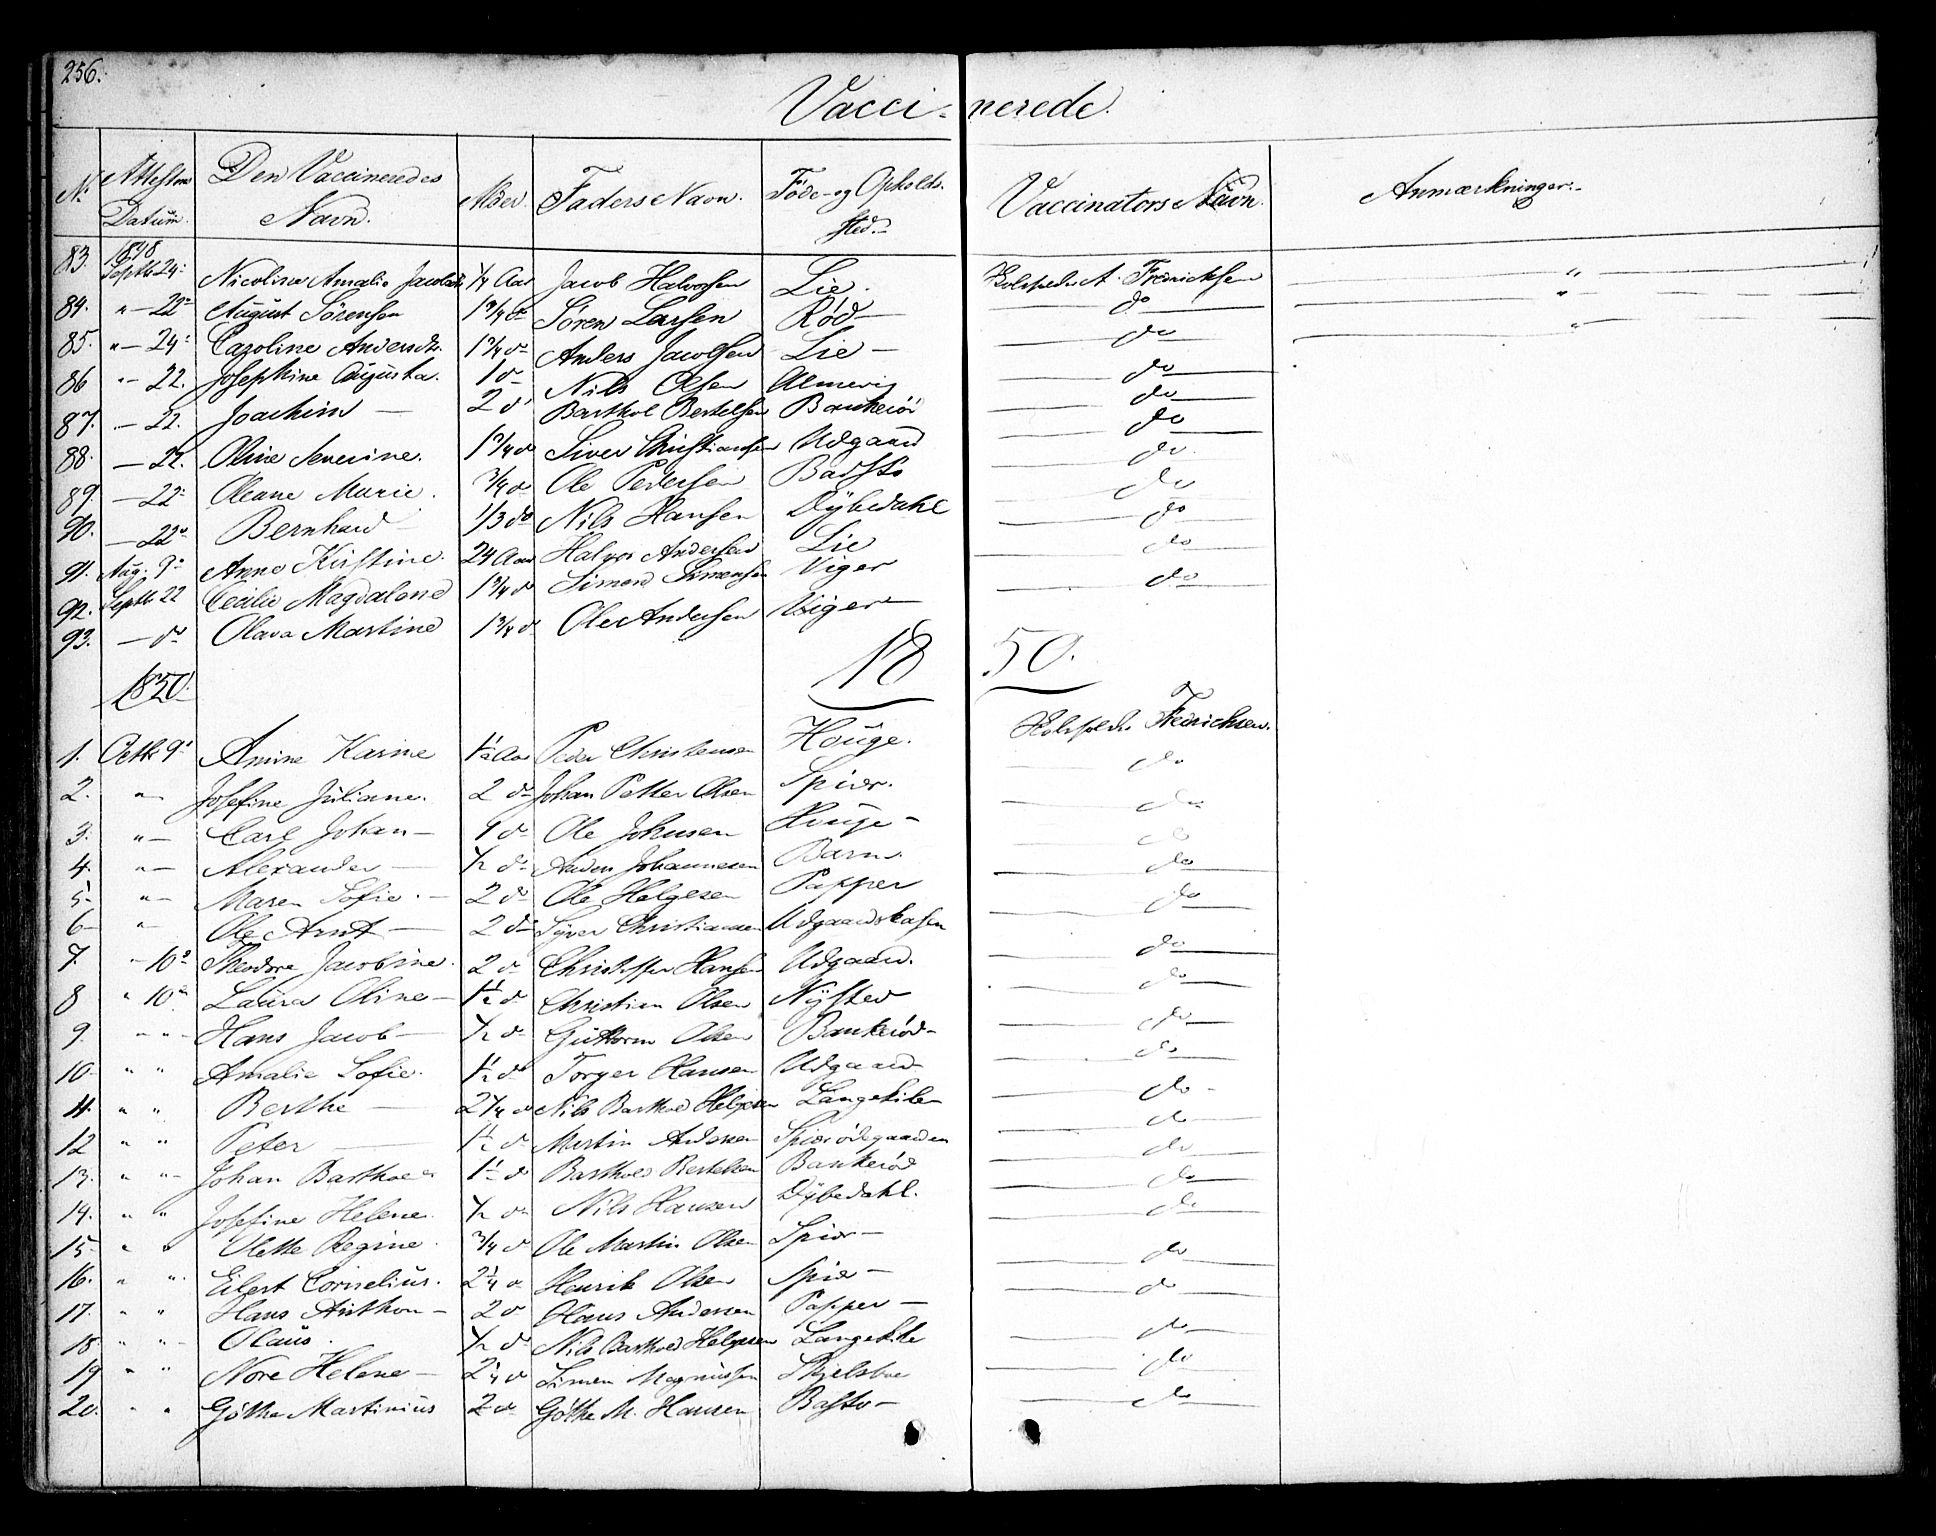 256.
Vaccinerede.
N. Attestens Datum. Den Vaccineredes Navn. Alder. Faders Navn. Føde- og Opholdssted. Vaccinators Navn. Anmærkninger.
1848
83. Septb 24 Nicoline Amalie Jacobsd 1/4 Aar Jacob Halvorsen Lie. A. Fredrichsen "
84. " — 22 August Sörensen 1 3/4 do Sören Larsen Rød — do "
85. " — 24 Caroline Andersdr. 1 3/4 do Anders Jacobsen Lie — do "
86 " — 22. Josephine Augusta. 1 do Nils Olsen do
87. — 22. Joachim — 2 do Barthol Bertelsen Bankerød do
88. — 22. Oline Severine. 1 3/4 do Siver Christiansen Udgaard do
89. — 22 Oleane Marie. 3/4 do Ole Pedersen Badstø do
90. — 22 Bernhard 1/3 do Nils Hansen Dÿbedahl do
91. Aug. 9 Anne Kirstine. 24 Aar Halvor Andersen Lie do
92. Septb 22 Cecilie Magdalene 1 3/4 do Simon Simonsen Viger do
93. — do Olava Martine 1 3/4 do Ole Andersen Viger — do
1850. 1850.
1. Octb 9 Anine Karine 1 1/2 Aar Peder Christensen Hoüge. Fredrichsen.
2. " Josefine Juliane. 2 do Johan Petter Olsen Spier. do
3. " — Carl Johan — 9 do Ole Johnsen Hoüge — do
4. " — Alexander — 1/2 do Anders Johannesen do
5. " — Maren Sofie. — 2 do Ole Helgesen Papper do
6 — " Ole Arnt — 2 do Syver Christiansen Udgaardskasen do
7. " 10 Theodore Jacobine. 2 do Christoffer Hansen Udgaard. do
8 " 10 Laura Oline — 1 1/2 do Christian Olsen Nÿsted do
9. " " Hans Jacob — 1/2 do Guttorm Olsen Bankerød — do
10. " " Amalie Sofie. 1 1/2 do Torger Hansen Udgaard do
11. " " Berthe — 2 1/4 do Nils Barthold Helgesen Langekile — do
12 " " Peter — 1 1/2 do Martin Andersen Spierødegaarden do
13. " " Johan Barthold 1 1/2 do Barthold Bertelsen Bankerød do
14. " " Josefine Helene. 1/2 do Nils Hansen Dÿbedahl. do
15 " " Olette Regine. 3/4 do Ole Martin Olsen Spier — do
16. " " Eilert Cornelius. 2 1/4 do Henrik Olsen Spier — do
17. " " Hans Anthon — 2 do Hans Andersen Papper — do
18. " " Olaus. 1/2 do Nils Barthold Helgesen Langekile do
19 " " Nore Helene — 2 1/4 do Simen Magnussen Skjelsboe do
20. " " Göthe Martinius 2 do Göthe M. Hansen Bastø — do